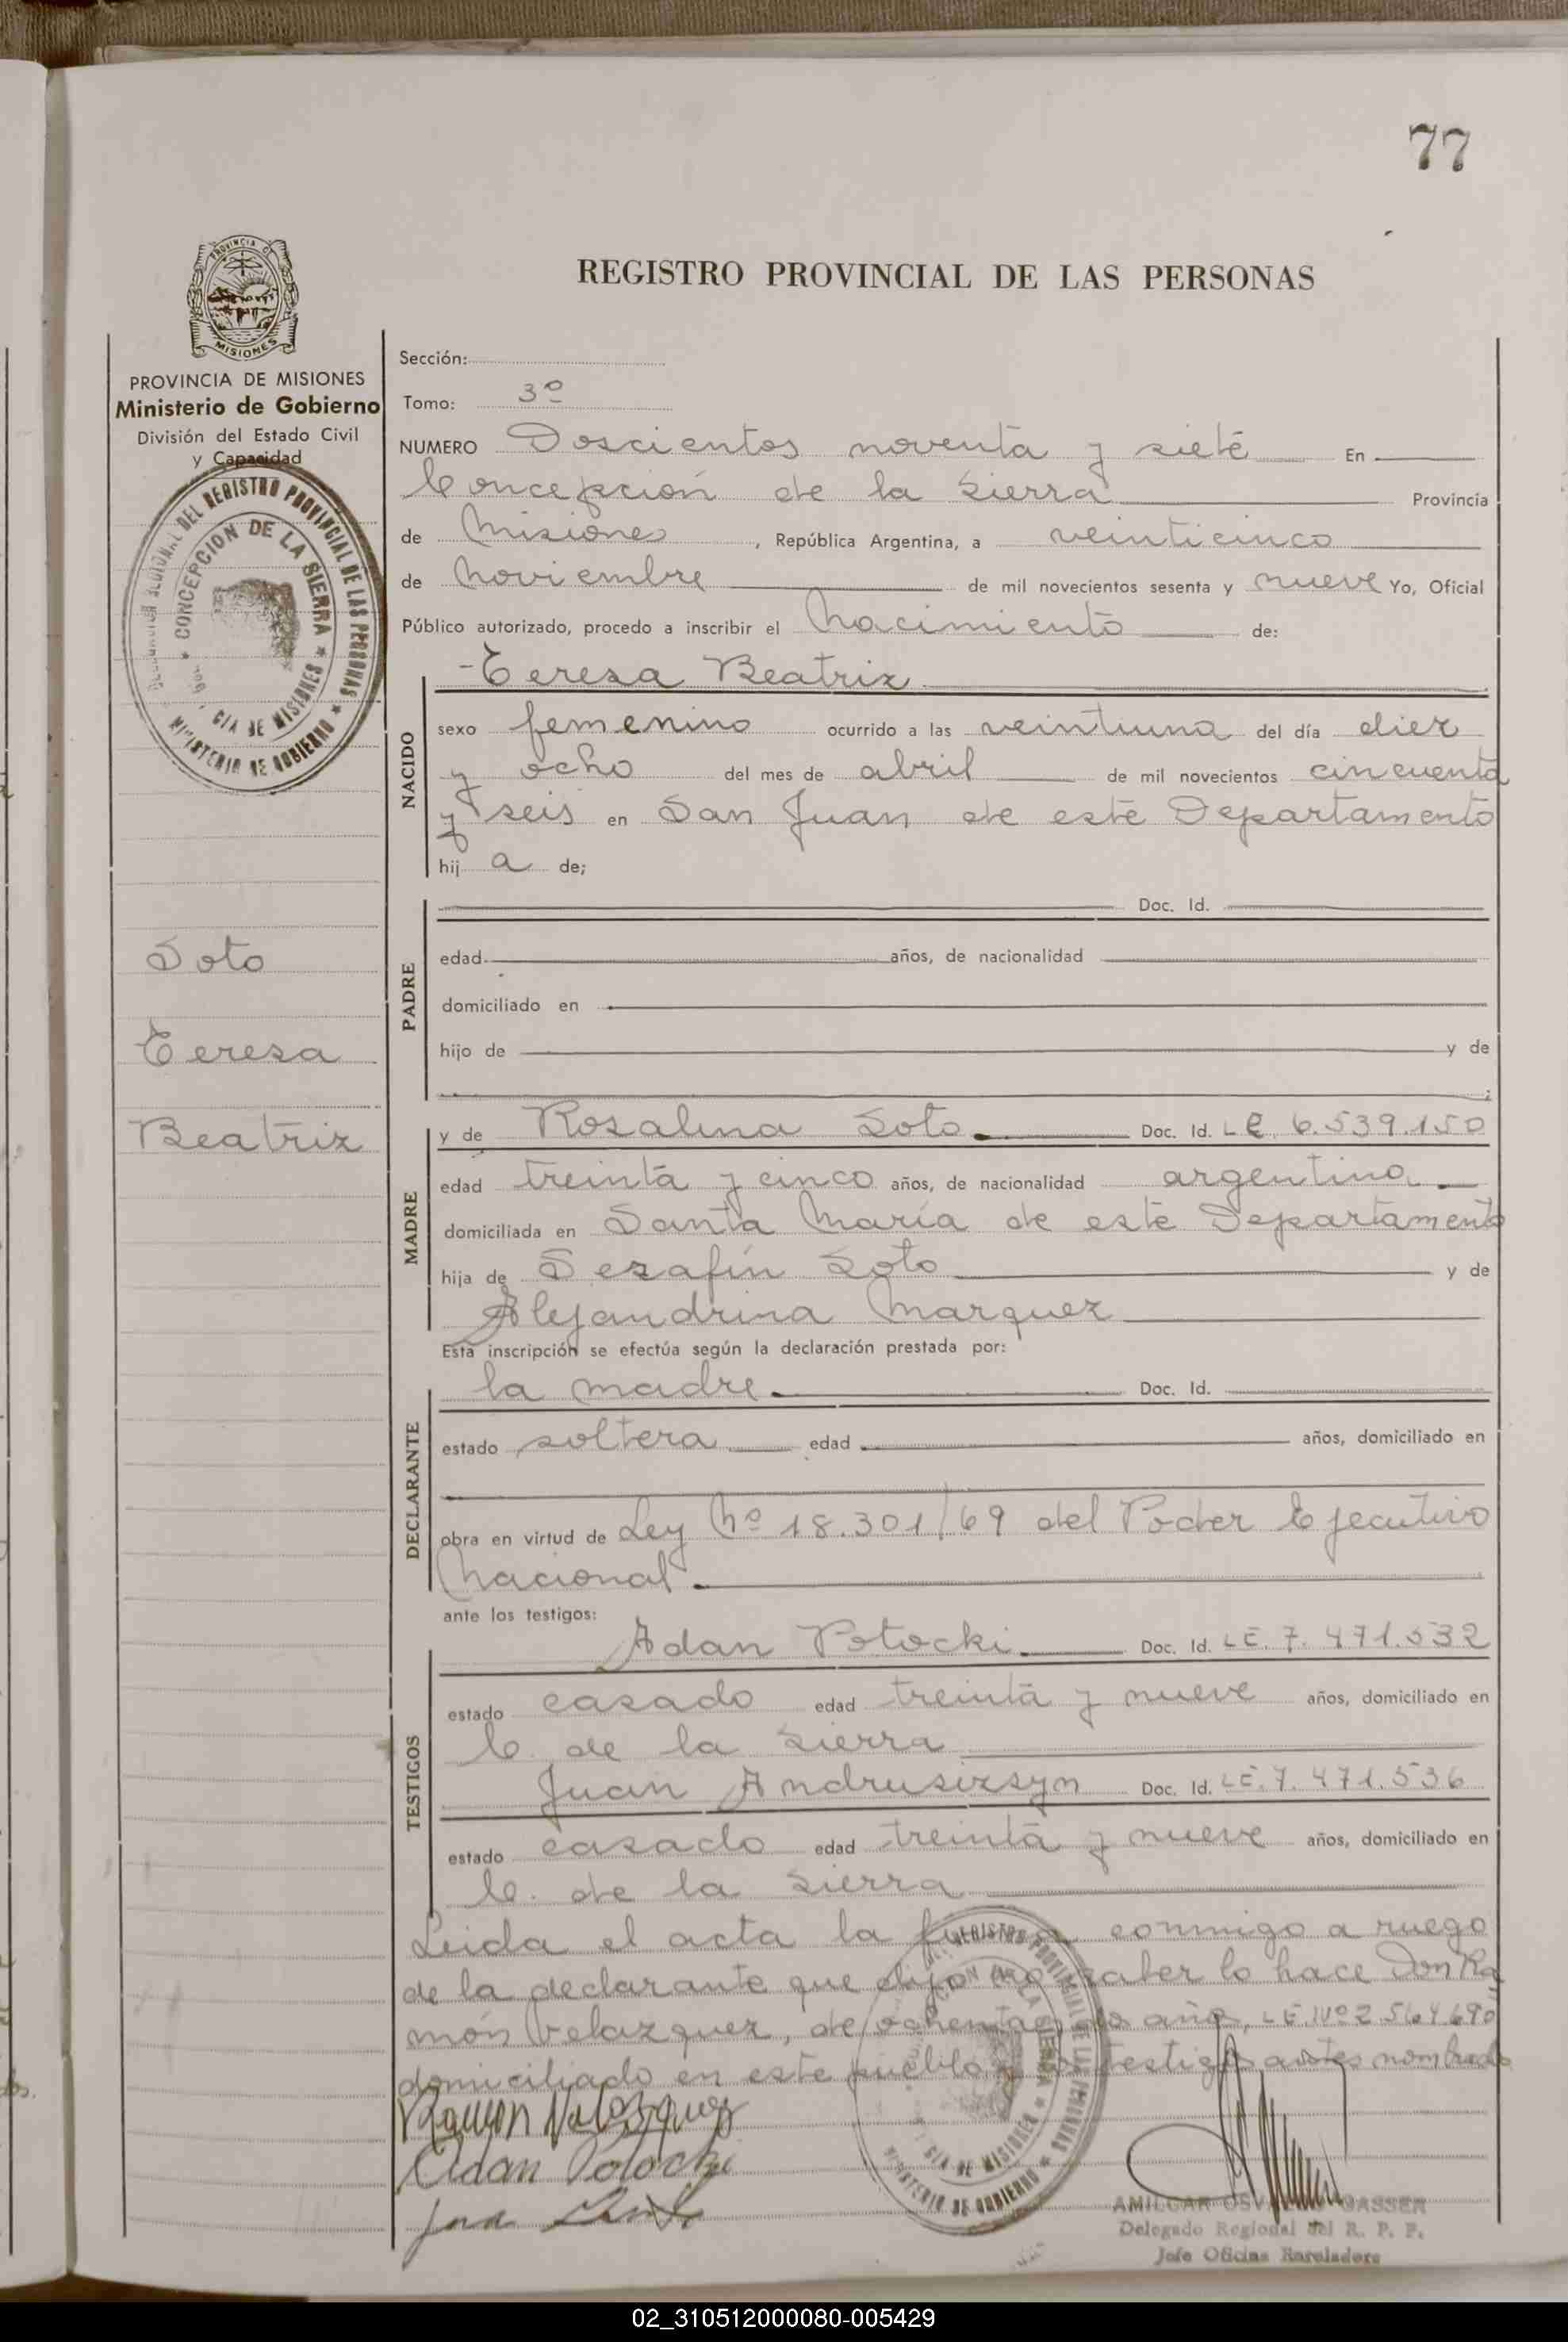 77
REGISTRO PROVINCIAL DE LAS PERSONAS
PROVINCIA DE MISIONES
Ministerio de Gobierno
División del Estado Civil
y Capacidad
REGISTRO PROVINCIAL DE LAS PERSONAS
CONCEPCION DE LA SIERRA
CIA DE MISIONES
MINISTERIO DE GOBIERNO
Soto
Teresa
Beatriz
Sección:
Tomo: 3º
NUMERO Doscientos noventa y siete En
Concepción de la Sierra Provincia
de Misiones, República Argentina, a veinticinco
de Noviembre de mil novecientos sesenta y nueve Yo, Oficial
Público autorizado, procedo a inscribir el Nacimiento de:
-Teresa Beatriz
NACIDO
sexo femenino ocurrido a las veintiuna del día diez
y ocho del mes de abril de mil novecientos cincuenta
y seis en San Juan de este Departamento
hij a de;
PADRE
Doc. Id.
edad años, de nacionalidad
domiciliado en
hijo de y de
MADRE
y de Rosalina Soto Doc. Id. LC. 6.539.150
edad treinta y cinco años, de nacionalidad argentina
domiciliada en Santa María de este Departamento
hija de Serafín Soto y de
Alejandrina Marquez
Esta inscripción se efectúa según la declaración prestada por:
DECLARANTE
la madre Doc. Id.
estado soltera edad años, domiciliado en
obra en virtud de Ley Nº 18.301/69 del Poder Ejecutivo
Nacional.
ante los testigos:
TESTIGOS
Adan Potocki Doc. Id. LE. 7.471.532
estado casado edad treinta y nueve años, domiciliado en
C. de la Sierra
Juan Andrusizsyn Doc. Id. LE. 7.471.536
estado casado edad treinta y nueve años, domiciliado en
C. de la Sierra
Leida el acta la firma conmigo a ruego
de la declarante que dijo no saber lo hace Don Ra
món Velazquez, de ochenta años, LE.Nº 2.564.690
domiciliado en este pueblo y testigos antes nombrados
REGISTRO PROVINCIAL DE LAS PERSONAS
CIA DE MISIONES
MINISTERIO DE GOBIERNO
Ramon Velazquez
Adan Potocki
AMILCAR GASSER
Delegado Regional del R. P. P.
Jefe Oficina
02_310512000080-005429